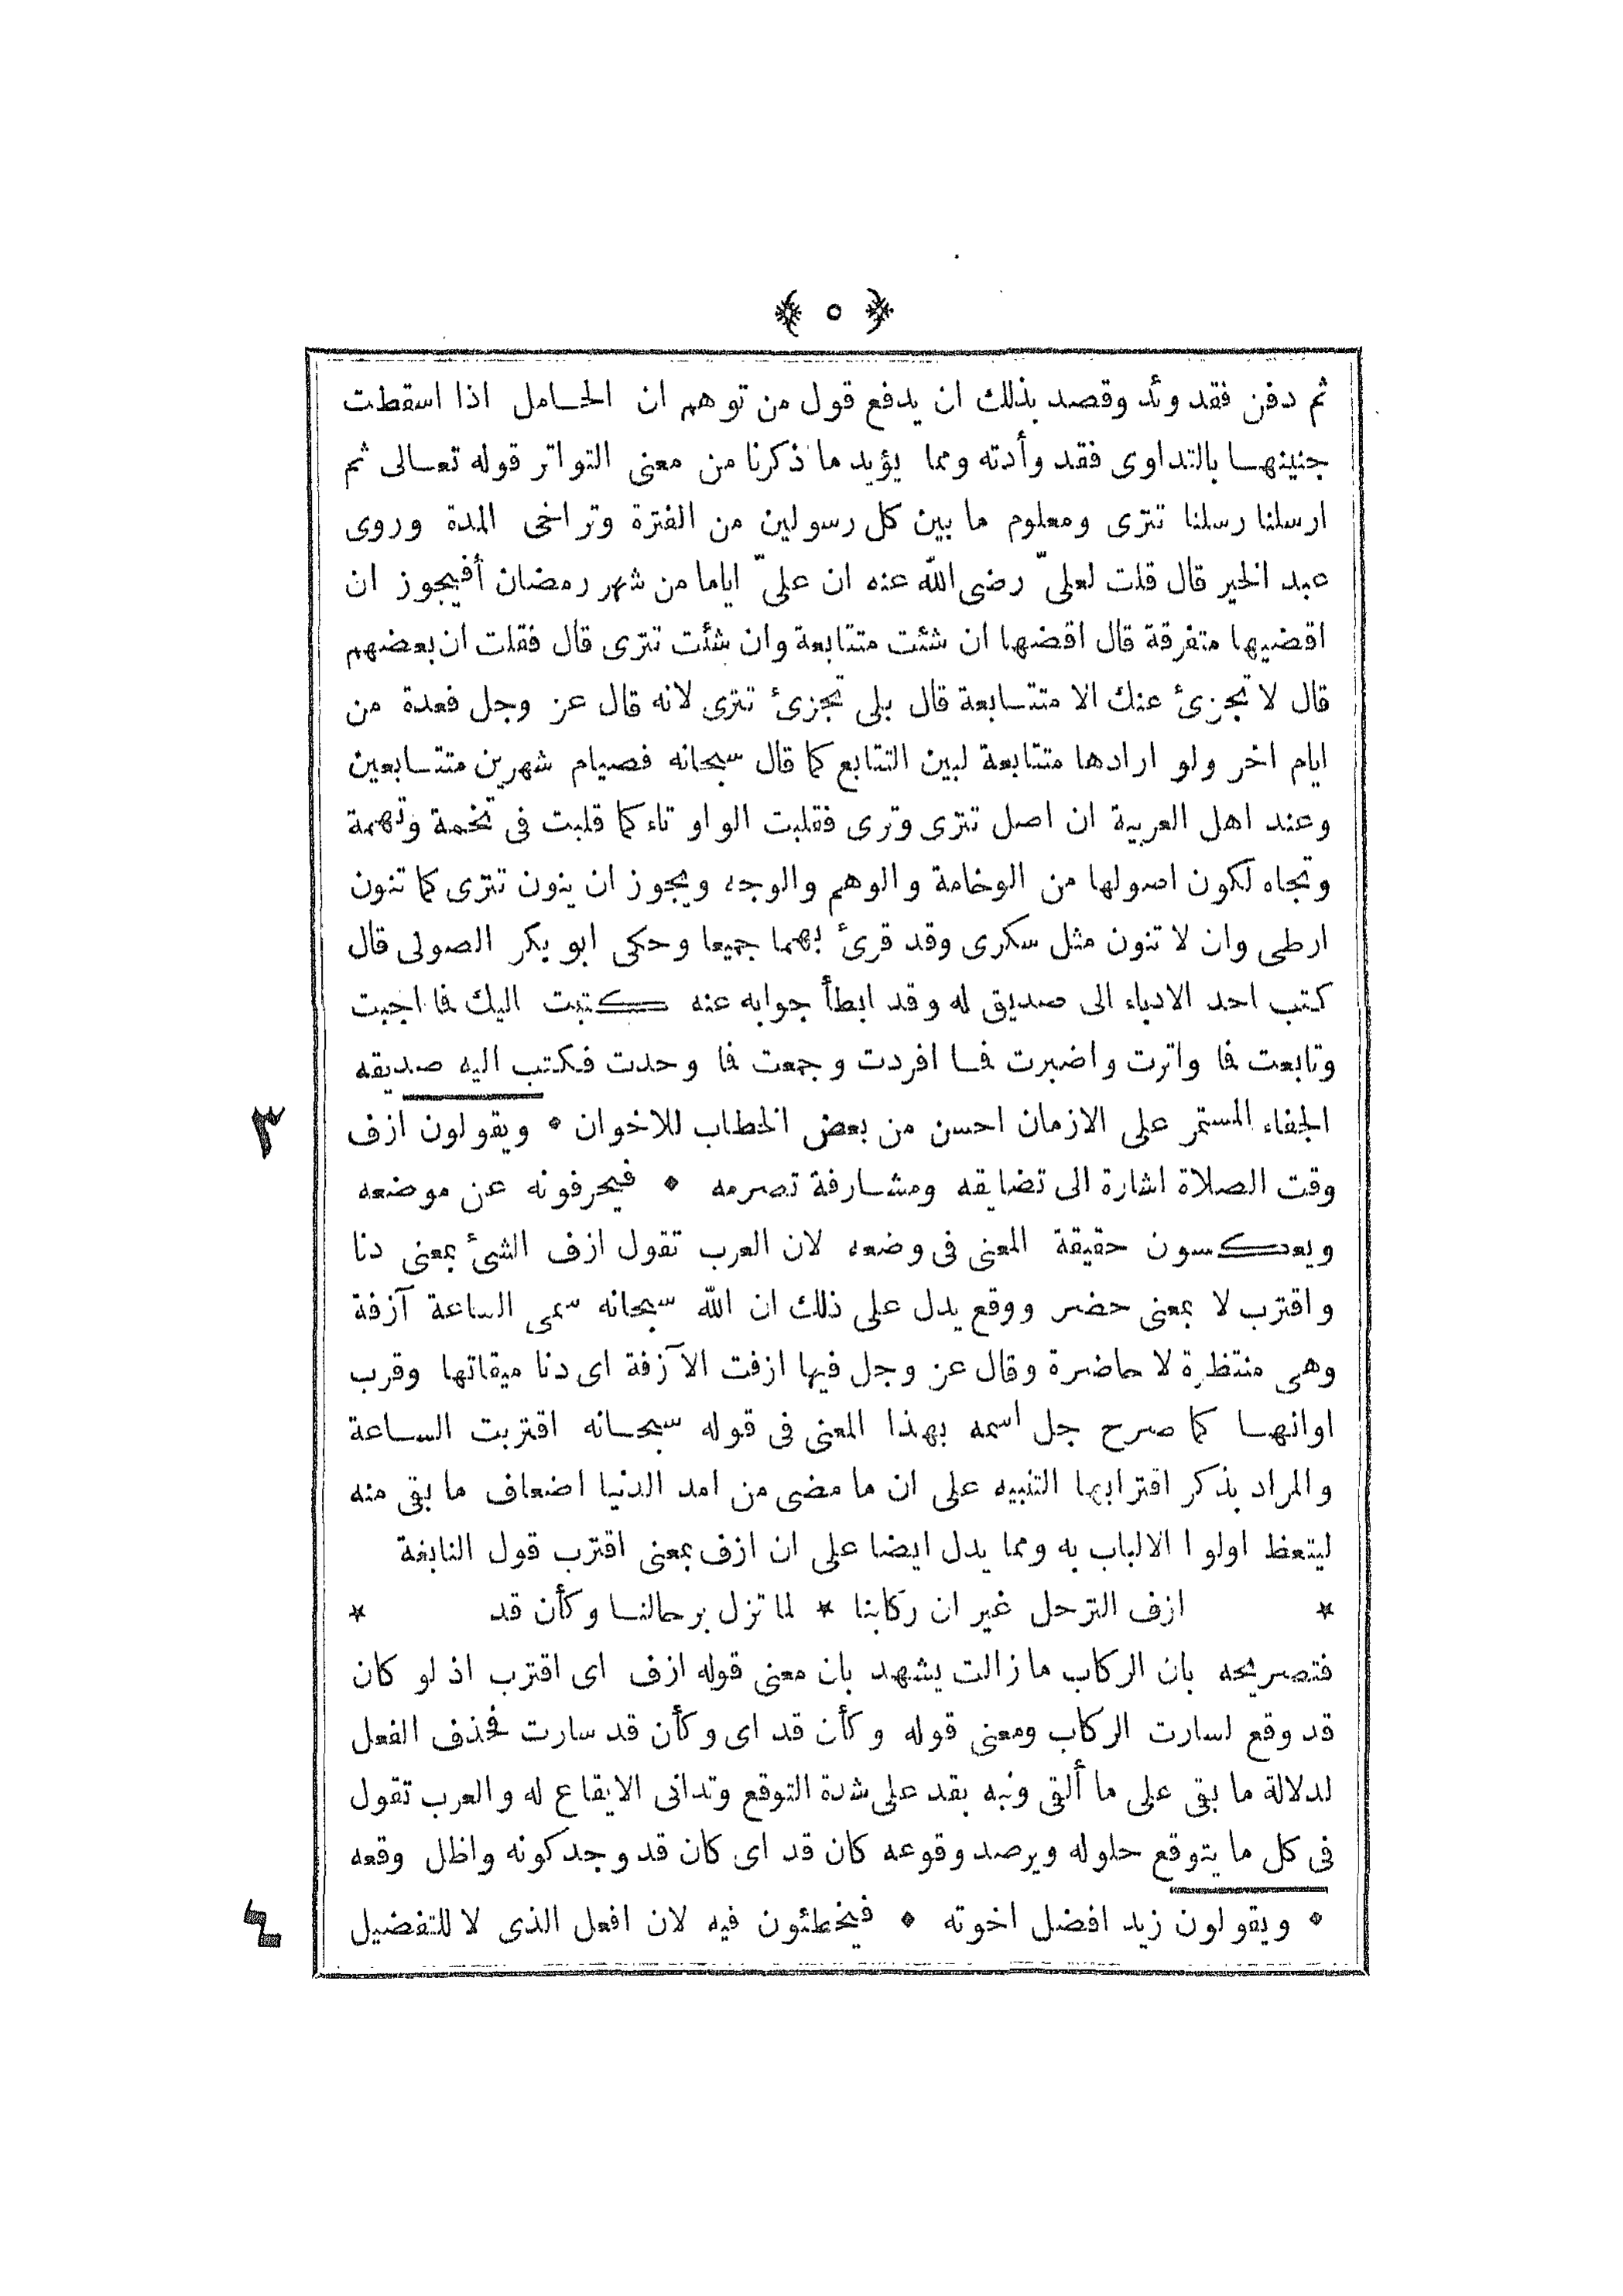 ﴿ ٥ ﴾
ثم دفن فقد وئد وقصد بذلك ان يدفع قول من توهم ان الحامل اذا اسقطت
جنينها بالتداوى فقد وأدته ومما يؤيد ما ذكرنا من معنى التواتر قوله تعالى ثم
ارسلنا رسلنا تترى ومعلوم ما بين كل رسولين من الفترة وتراخى المدة وروى
عبد الخير قال قلت لعلىّ رضى الله عنه ان علىّ اياما من شهر رمضان أفيجوز ان
اقضيها متفرقة قال اقضها ان شئت متتابعة وان شئت تترى قال فقلت ان بعضهم
قال لا تجزئ عنك الا متتابعة قال بلى تجزئ تترى لانه قال عز وجل فعدة من
ايام اخر ولو ارادها متتابعة لبين التتابع كما قال سبحانه فصيام شهرين متتابعين
وعند اهل العربية ان اصل تترى وترى فقلبت الواو تاء كما قلبت فى تخمة وتهمة
وتجاه لكون اصولها من الوخامة والوهم والوجه ويجوز ان ينون تترى كما تنون
ارطى وان لا تنون مثل سكرى وقد قرئ بهما جميعا وحكى ابو بكر الصولى قال
كتب احد الادباء الى صديق له وقد ابطأ جوابه عنه كتبت اليك فما اجبت
وتابعت فما واترت واضبرت فما افردت وجمعت فما وحدت فكتب اليه صديقه
الجفاء المستمر على الازمان احسن من بعض الخطاب للاخوان * ويقولون ازف
٣
وقت الصلاة اشارة الى تضايقه ومشارفة تصرمه * فيحرفونه عن موضعه
ويعكسون حقيقة المعنى فى وضعه لان العرب تقول ازف الشئ بمعنى دنا
واقترب لا بمعنى حضر ووقع يدل على ذلك ان الله سبحانه سمى الساعة آزفة
وهى منتظرة لا حاضرة وقال عز وجل فيها ازفت الآزفة اى دنا ميقاتها وقرب
اوانها كما صرح جل اسمه بهذا المعنى فى قوله سبحانه اقتربت الساعة
والمراد بذكر اقترابها التنبيه على ان ما مضى من امد الدنيا اضعاف ما بقى منه
ليتعظ اولوا الالباب به ومما يدل ايضا على ان ازف بمعنى اقترب قول النابغة
* ازف الترحل غير ان ركابنا * لما تزل برحالنا وكأن قد *
فتصريحه بان الركاب ما زالت يشهد بان معنى قوله ازف اى اقترب اذ لو كان
قد وقع لسارت الركاب ومعنى قوله وكأن قد اى وكأن قد سارت فحذف الفعل
لدلالة ما بقى على ما ألقى ونبه بقد على شدة التوقع وتدانى الايقاع له والعرب تقول
فى كل ما يتوقع حلوله ويرصد وقوعه كان قد اى كان قد وجد كونه واظل وقعه
* ويقولون زيد افضل اخوته * فيخطئون فيه لان افعل الذى لا للتفضيل
٤